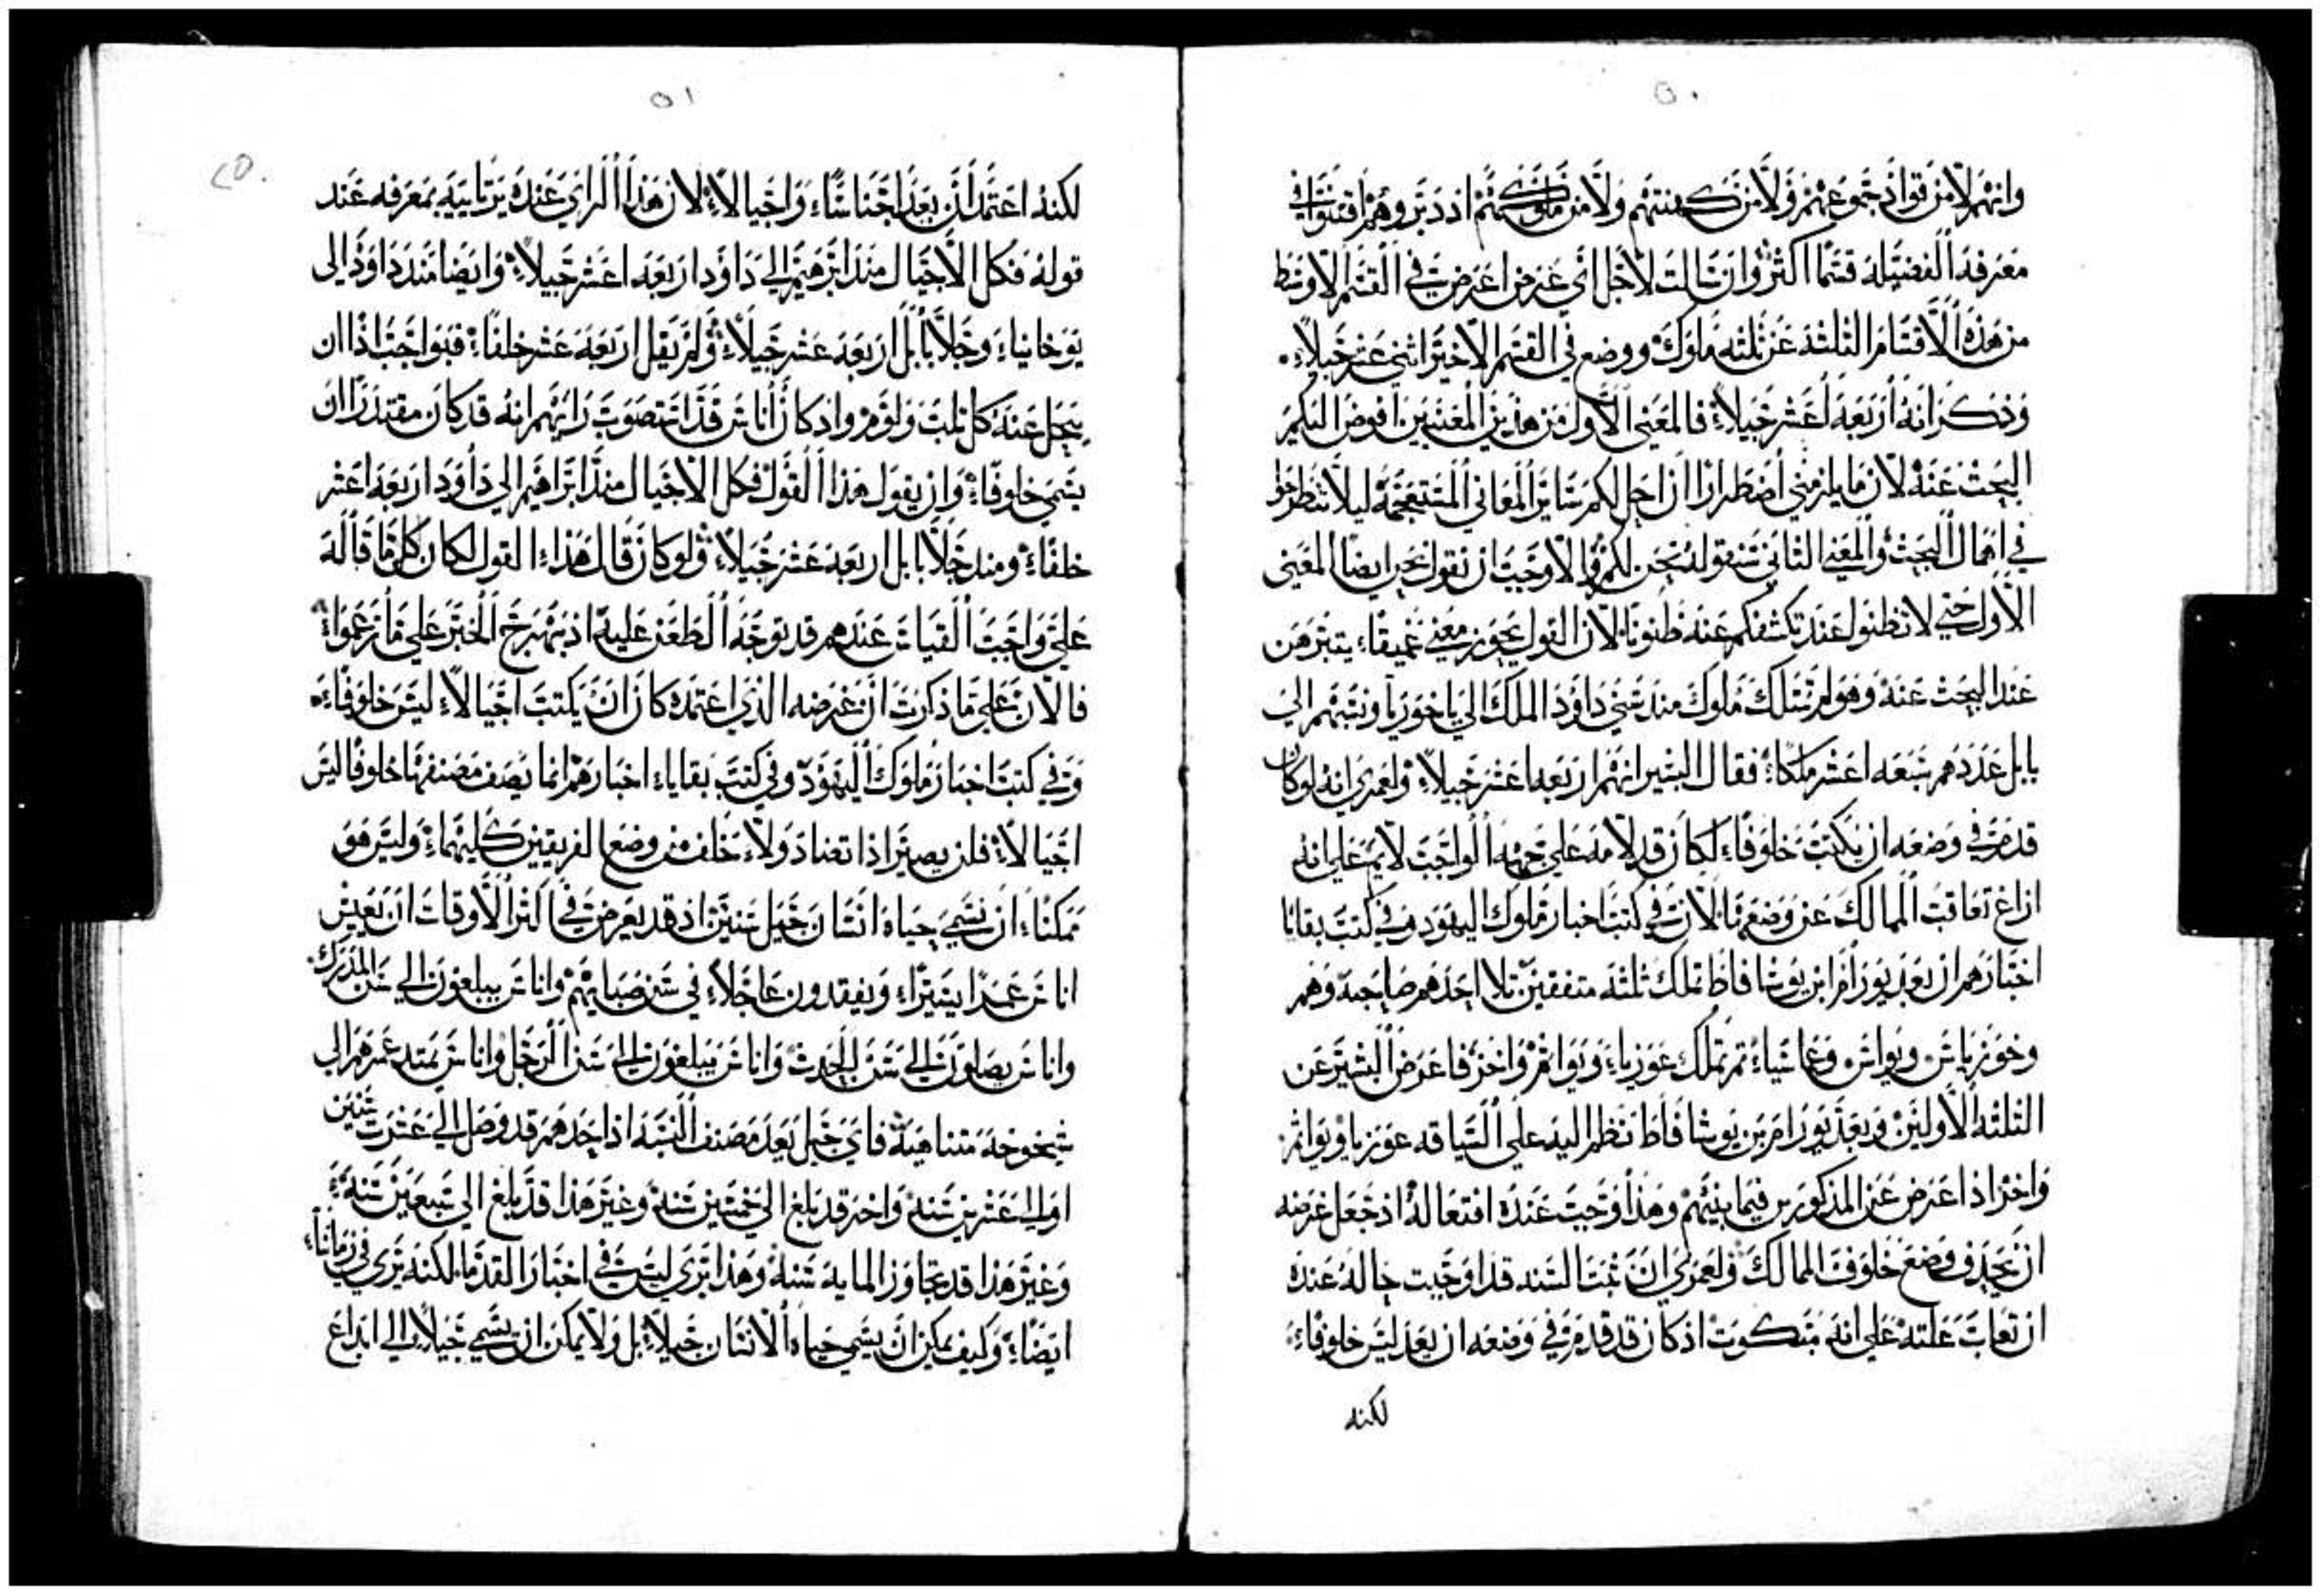 ٥٠
وانهم لا من قواد جموعهم ولا من كهنتهم ولا من ملوكهم اد دبروهم اقتنوا في
معرفة الفضيله قسما اكثر وان سالت لاجل اي غرض اعرض في القسم الاوسط
من هذه الاقسام الثلثه عن ثلثه ملوك ووضع في القسم الاخير اثني عشر جيلاً
وذكر انه اربعه اعشر جيلاً فالمعني الاول من هذين المعنيين افوض اليكم
البحث عنه لان ما يلزمني اضطرارا ان احل لكم ساير المعاني المستعجمه ليلا
في اهمال البحث والمعني الثاني سنقوله نحن لكم والاوجب ان نقول نحن ايضا المعني
الاول حتي لا تظنوا عند تكشفكم عنه ظنونا لان القول يحوز معني عميقاء يتبرهن
عند البحث عنه وهو لم تسلك ملوك مند سبي داوود الملك الي ياخوريا ونسبتهم الي
بابل عددهم سبعه اعشر ملكاء فقال البشير انهم اربعه اعشر جيلاً ولعمري انه لو كان
قد مر في وضعه ان يكتب خلوفاء لكان قد لامه علي جهه الواجب لايم علي انه
ازاغ تعاقب الممالك عن وضعها لان في كتب اخبار ملوك اليهود وفي كتب بقايا
اخبارهم ان بعد يورام ابن يوشافاط تملك ثلثه متفقين تلا احدهم صاحبه وهم
وخوزياس ويواس وعاسياء ثم تملك عوزياء ويواثم واخز فاعرض البشير عن
الثلثه الاولين وبعد يورام بن يوشافاط نظم اليه علي السياقه عوزيا ويواثم
واخز اذ اعرض عن المذكورين فيما بينهم وهذا وجب عنده افتعاله اذ جعل غرضه
ان يحذف وضع خلوف الممالك ولعمري ان تمت السنه قد اوجبت حاله عندك
ان تعاب علته علي انه مبكوت اذ كان قد قدم في وضعه ان يعد ليس خلوفاء
لكنه
٥١
٢٥.
لكنه اعتمد ان يعد اجناسا واجيالاً لان هذا الراي عنده يرتابيه بمعرفه عند
قوله فكل الاجيال منذ ابرهيم الي داود اربعه اعشر جيلاً وايضا منذ داوود الي
يوخانياء وجلا بابل اربعه عشر جيلاً ولم يقل اربعه عشر خلفاً فبواجب اذا ان
يتجل عنه كل ثلب ولوم واذ كان اناس قد استصوب رايهم انه قد كان مقتدرا ان
يسمي خلوفاء وان يقول هذا القول فكل الاجيال منذ ابراهيم الي داوود اربعه اعشر
خلفاء ومند جلا بابل اربعه عشر جيلاً ولو كان قال هذا القول لكان كل ما قاله
علي واجب القياس عندهم قد توجه الطعن عليه اذ يبهرج الخبر علي ما زعموا
فالان علي ما ذكرت ان غرضه الذي اعتمده كان ان يكتب اجيالاً ليس خلوفاء
وفي كتب اخبار ملوك اليهود وفي كتب بقاياء اخبارهم انما يصف مصنفها خلوفا ليس
اجيالاً فلن يصير اذا تعناد ولا خلف من وضع الفريقين كليهما وليس هو
ممكناء ان نسمي حياه انسان جيل سنين اذ قد يعرض في اكثر الاوقات ان يعيش
اناس عمرا يسيراء ويفقدون عاجلاً في سن صبايهم واناس يبلغون الي سن المدرك
واناس يصلون الي سن الحدث واناس يبلغون الي سن الرجل واناس يمتد عمرهم الي
شيخوخه متناهيه فاي جيل يعد مصنف النسبه اذ احدهم قد وصل الي عشرت سنين
او الي عشرين سنه واخر قد بلغ الي خمسين سنه وغير هذا قد بلغ الي سبعين سنه
وغير هذا قد تجاوز المايه سنه وهذا يري ليس في اخبار القدما لكنه يري في زماناء
ايضاء وكيف يمكن ان يسمي حياه الانسان جيلاً بل ولا يمكن ان يسمي جيلاً الي ابداع